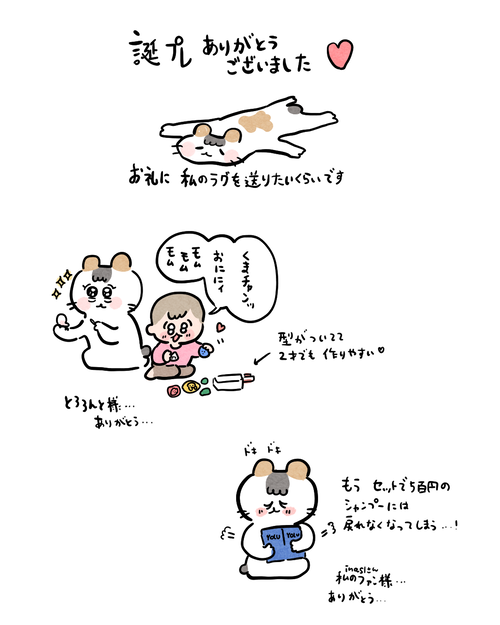 誕プレ ありがとう
ございました
お礼に 私のラグを送りたいくらいです
くまチャンッ
おにニィ
モム モム モム
型がついてて
2才でも 作りやすい♡
とろろんと様…
ありがとう…
ドキ ドキ
もう セットで5百円の
シャンプーには
戻れなくなってしまう…!
YOLU YOLU
私のファン様…
ありがとう…